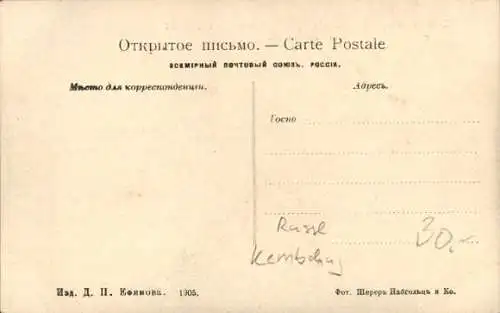 Открытое письмо. — Carte Postale
ВСЕМІРНЫЙ ПОЧТОВЫЙ СОЮЗЪ. РОССІЯ.
Мѣсто для корреспонденціи.
Адресъ.
Госпо
30.-
Изд. Д. П. Ефимова. 1905.
Фот. Шереръ Набгольцъ и Ко.